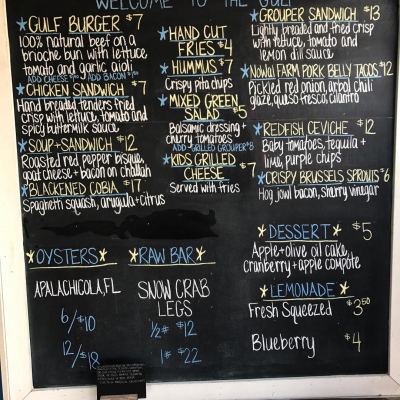 WELCOME TO THE GULF
GULF BURGER $7
100% natural beef on a
brioche bun with lettuce
tomato and garlic aioli
ADD CHEESE ADD BACON
CHICKEN SANDWICH $7
Hand breaded tenders fried
crisp with lettuce, tomato and
spicy buttermilk sauce
SOUP + SANDWICH $12
Roasted red pepper bisque,
goat cheese + bacon on challah
BLACKENED COBIA $17
Spaghetti squash, arugula + citrus
HAND CUT
FRIES $4
HUMMUS $7
Crispy pita chips
MIXED GREEN
SALAD $5
Balsamic dressing +
cherry tomatoes
ADD - GRILLED GROUPER $8
KIDS GRILLED
CHEESE $7
Served with fries
GROUPER SANDWICH $13
Lightly breaded and fried crisp
with lettuce, tomato and
lemon dill sauce
NoWall FARM PORK BELLY TACOS $12
Pickled red onion, arbol chili
glaze, queso fresco, cilantro
REDFISH CEVICHE $12
Baby tomatoes, tequila +
lime, purple chips
CRISPY BRUSSELS SPROUTS $6
Hog jowl bacon, sherry vinegar
OYSTERS
APALACHICOLA, FL
6/$10
12/$18
RAW BAR
SNOW CRAB
LEGS
1/2# $12
1# $22
DESSERT $5
Apple + olive oil cake,
cranberry + apple compote
LEMONADE
Fresh Squeezed $3.50
Blueberry $4